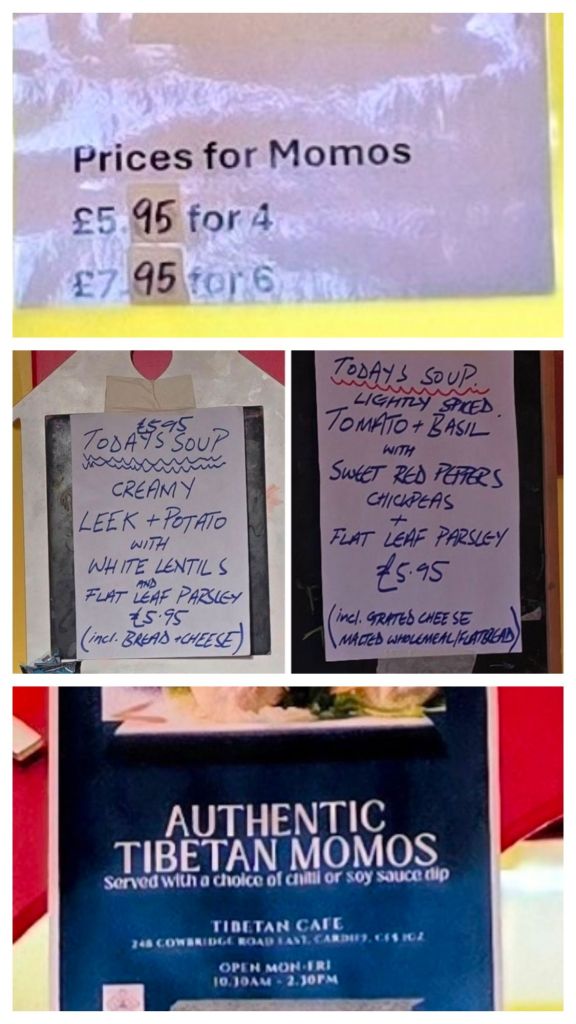 Prices for Momos
£5.95 for 4
£7.95 for 6
£5.95
TODAYS SOUP
CREAMY
LEEK + POTATO
WITH
WHITE LENTILS
AND
FLAT LEAF PARSLEY
£5.95
(incl. BREAD + CHEESE)
TODAYS SOUP.
LIGHTLY SPICED.
TOMATO + BASIL
WITH
SWEET RED PEPPERS
CHICKPEAS
+
FLAT LEAF PARSLEY
£5.95
(incl. GRATED CHEESE
MALTED WHOLEMEAL/FLATBREAD)
AUTHENTIC
TIBETAN MOMOS
Served with a choice of chilli or soy sauce dip
TIBETAN CAFE
248 COWBRIDGE ROAD EAST, CARDIFF, CF5 1GZ
OPEN MON-FRI
10.30AM - 2.30PM